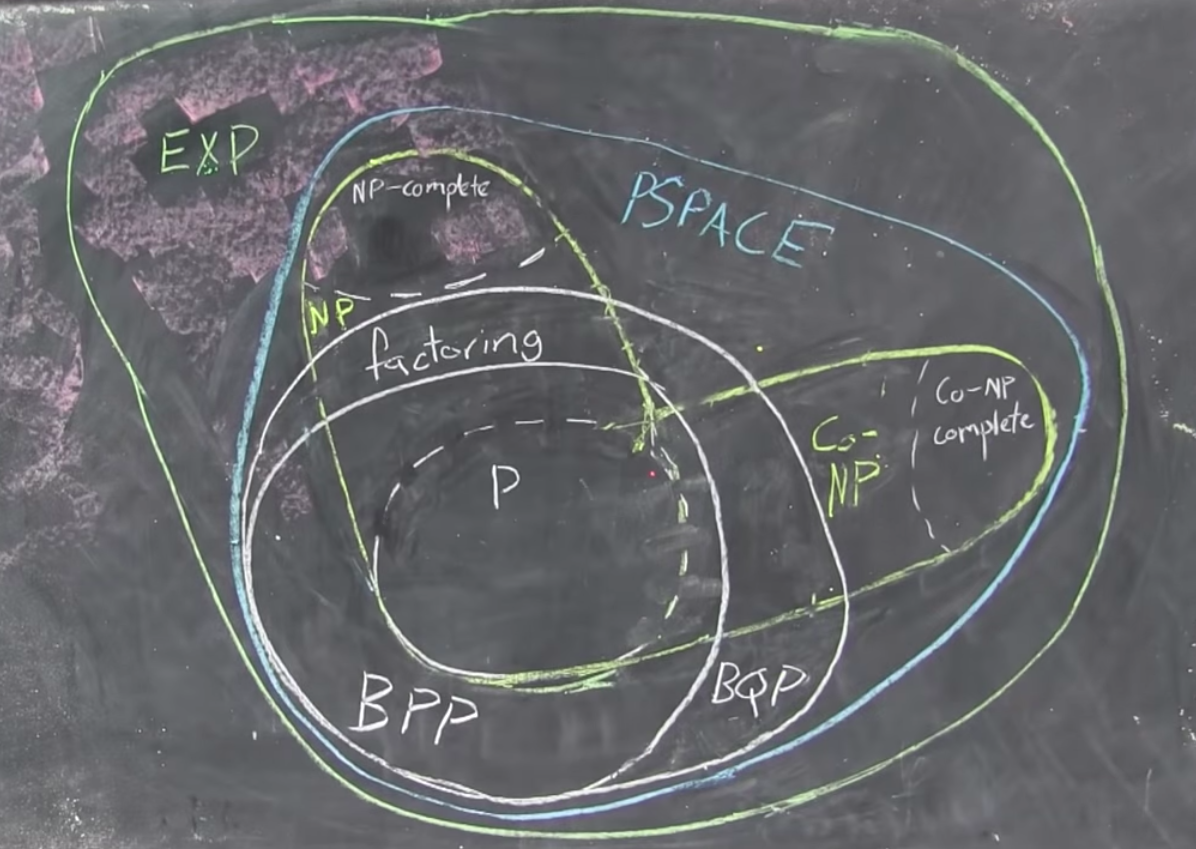 EXP
NP-complete
PSPACE
NP
factoring
Co-NP
complete
Co-
NP
P
BPP
BQP